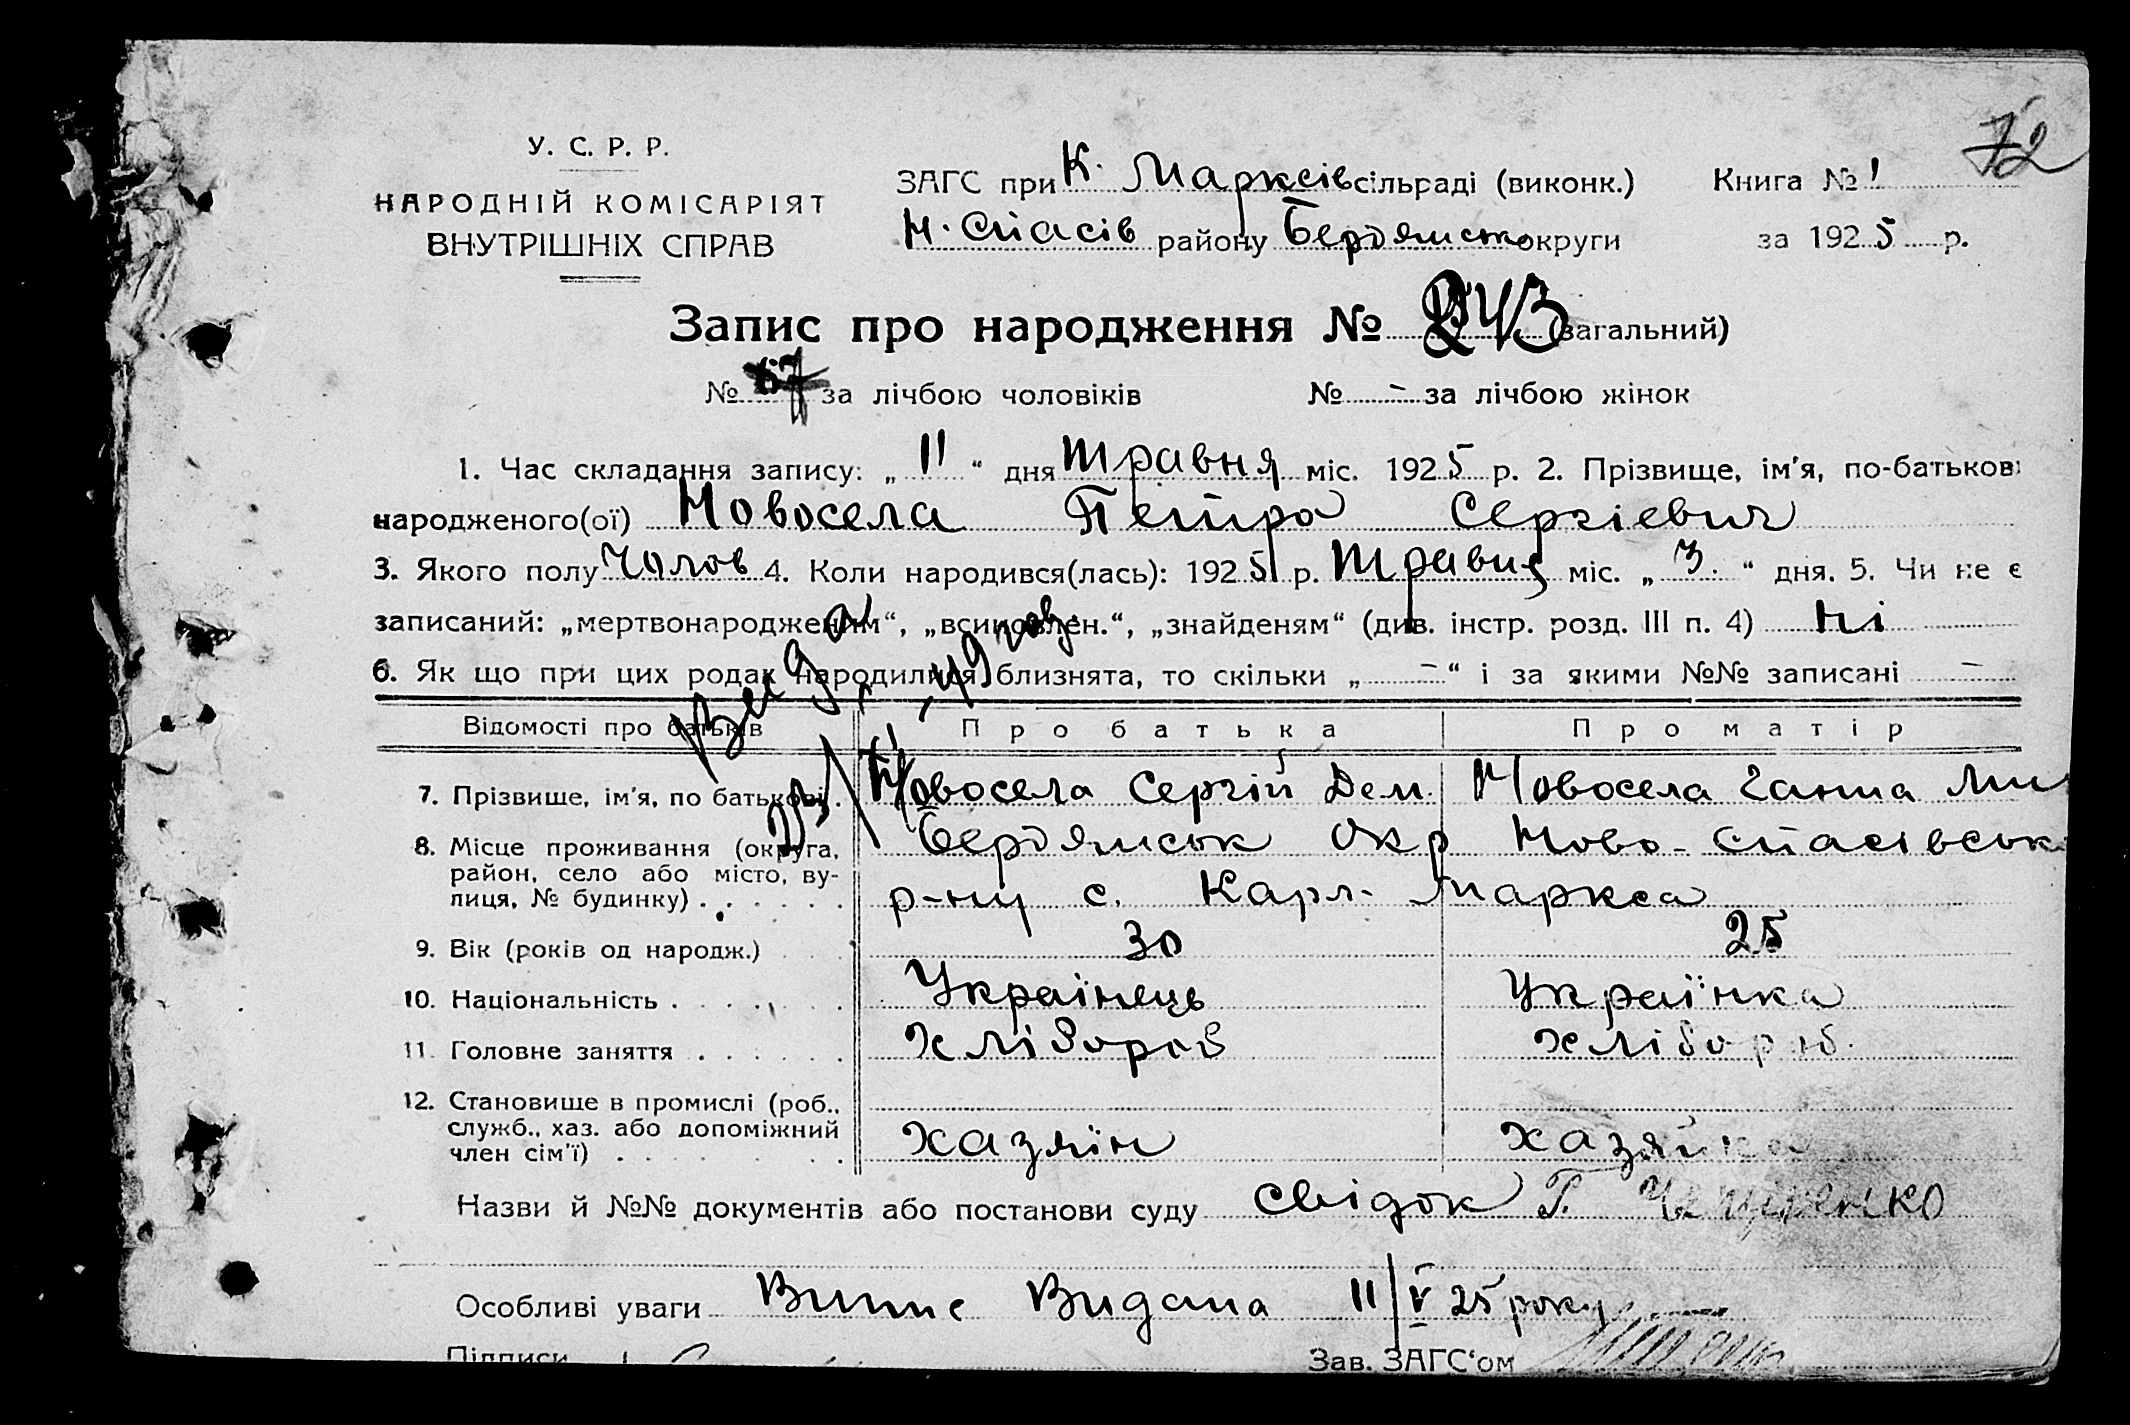 72
У. С. Р. Р.
НАРОДНІЙ КОМІСАРІЯТ
ВНУТРІШНІХ СПРАВ
ЗАГС при К. Марксів сільраді (виконк.) Книга № 1
Н. Спасів району Бердянськ округи за 1925 р.
Запис про народження № 243 (загальний)
№ 67 за лічбою чоловіків № – за лічбою жінок
1. Час складання запису: „ 11 “ дня травня міс. 1925 р. 2. Прізвище, ім'я, по-батькові
народженого(ої) Новосела Петро Сергієвич
3. Якого полу Чолов 4. Коли народився(лась): 1925 р. травня міс. „ 3. “ дня. 5. Чи не є
записаний: „мертвонародженим“, „всиновлен.“, „знайденям“ (див. інстр. розд. III п. 4) ні
6. Як що при цих родах народилися близнята, то скільки „ – “ і за якими №№ записані –
Відомості про батьків Про батька Про матір
7. Прізвище, ім'я, по батькові. Новосела Сергій Дем. Новосела Ганна Ми
8. Місце проживання (округа, Бердянськ Окр Ново-Спасівськ
район, село або місто, ву-
лиця, № будинку) р-ну с. Карл-Маркса
9. Вік (років од народж.) 30 25
10. Національність Українець Українка
11. Головне заняття хлібороб хлібороб.
12. Становище в промислі (роб.,
служб., хаз. або допоміжний
член сім'ї) хазяїн хазяйка
Назви й №№ документів або постанови суду свідок Г.
Особливі уваги Випис Видана 11/V 25 року
Підписи Зав. ЗАГС'ом